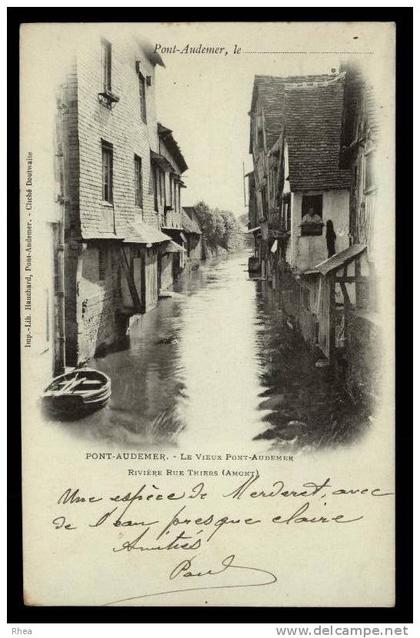 Pont-Audemer, le
Imp.-Lib. Hauchard, Pont-Audemer. - Cliché Doutwaite
PONT-AUDEMER. - LE VIEUX PONT-AUDEMER
RIVIÈRE RUE THIERS (AMONT)
Une espèce de Merderet, avec
de l'eau presque claire
Amitiés
Paul
Rhea
www.delcampe.net